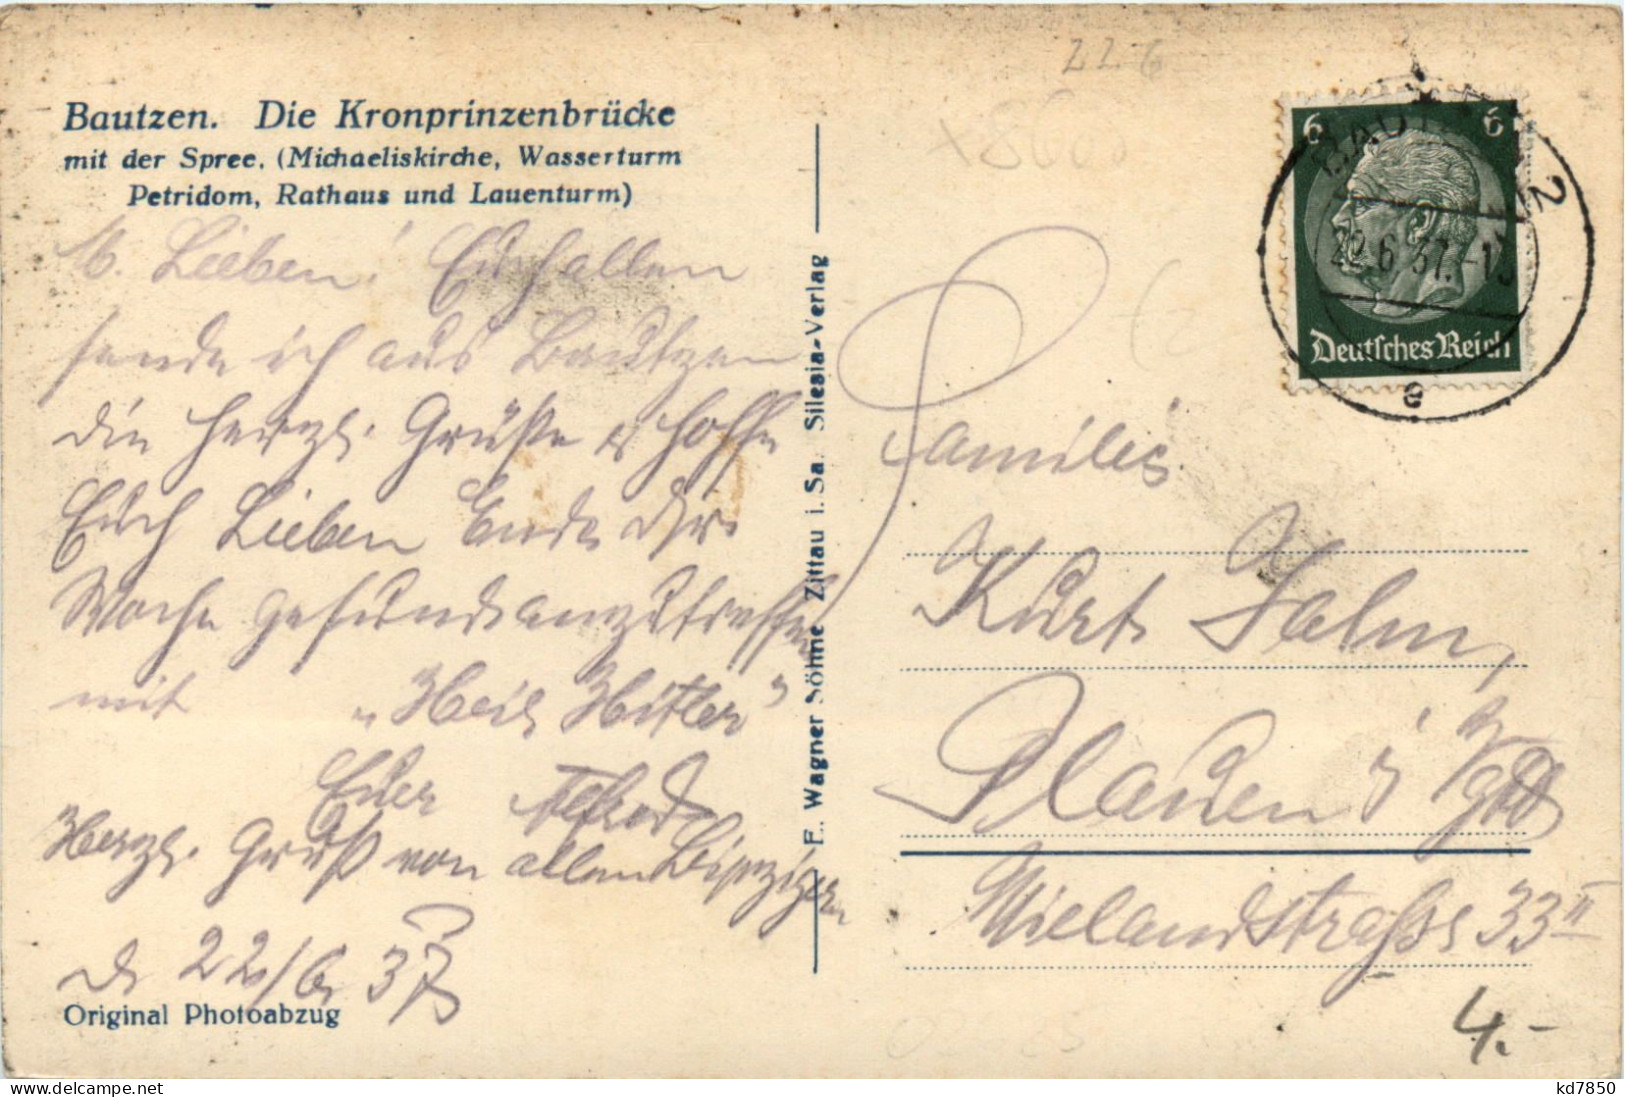 22.6
Bautzen. Die Kronprinzenbrücke
mit der Spree, (Michaeliskirche, Wasserturm
Petridom, Rathaus und Lauenturm)
Lieben! Euch allen
sende ich aus Bautzen
die herzl. Grüße u hoffe
Euch Lieben Ende der
Woche gesund anzutreffen
mit „Heil Hitler"
Euer Alfred
Herzl. Gruß von allen Leipzigern
d. 22/6. 37
Original Photoabzug
E. Wagner Söhne Zittau i. Sa. Silesia-Verlag
6 6
Deutsches Reich
BAUTZEN 2
22.6.37.-19
e
Familie
Kurt Jahn,
Plauen i Vgtd
Wielandstraße 33 II
4.-
kd7850
www.delcampe.net